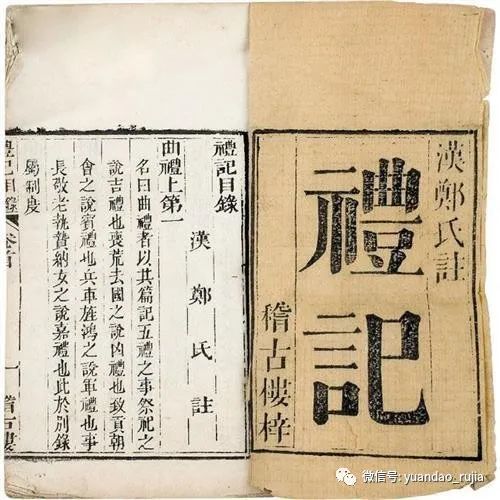 漢鄭氏註
禮記
稽古樓梓
禮記目錄
漢鄭氏註
曲禮上第一
名曰曲禮者以其篇記五禮之事祭祀之
說吉禮也喪荒去國之說凶禮也致貢朝
會之說賓禮也兵車旌鴻之說軍禮也事
長敬老執贄納女之說嘉禮也此於別錄
屬制度
禮記目錄
卷首
一
稽古樓
微信号: yuandao_rujia